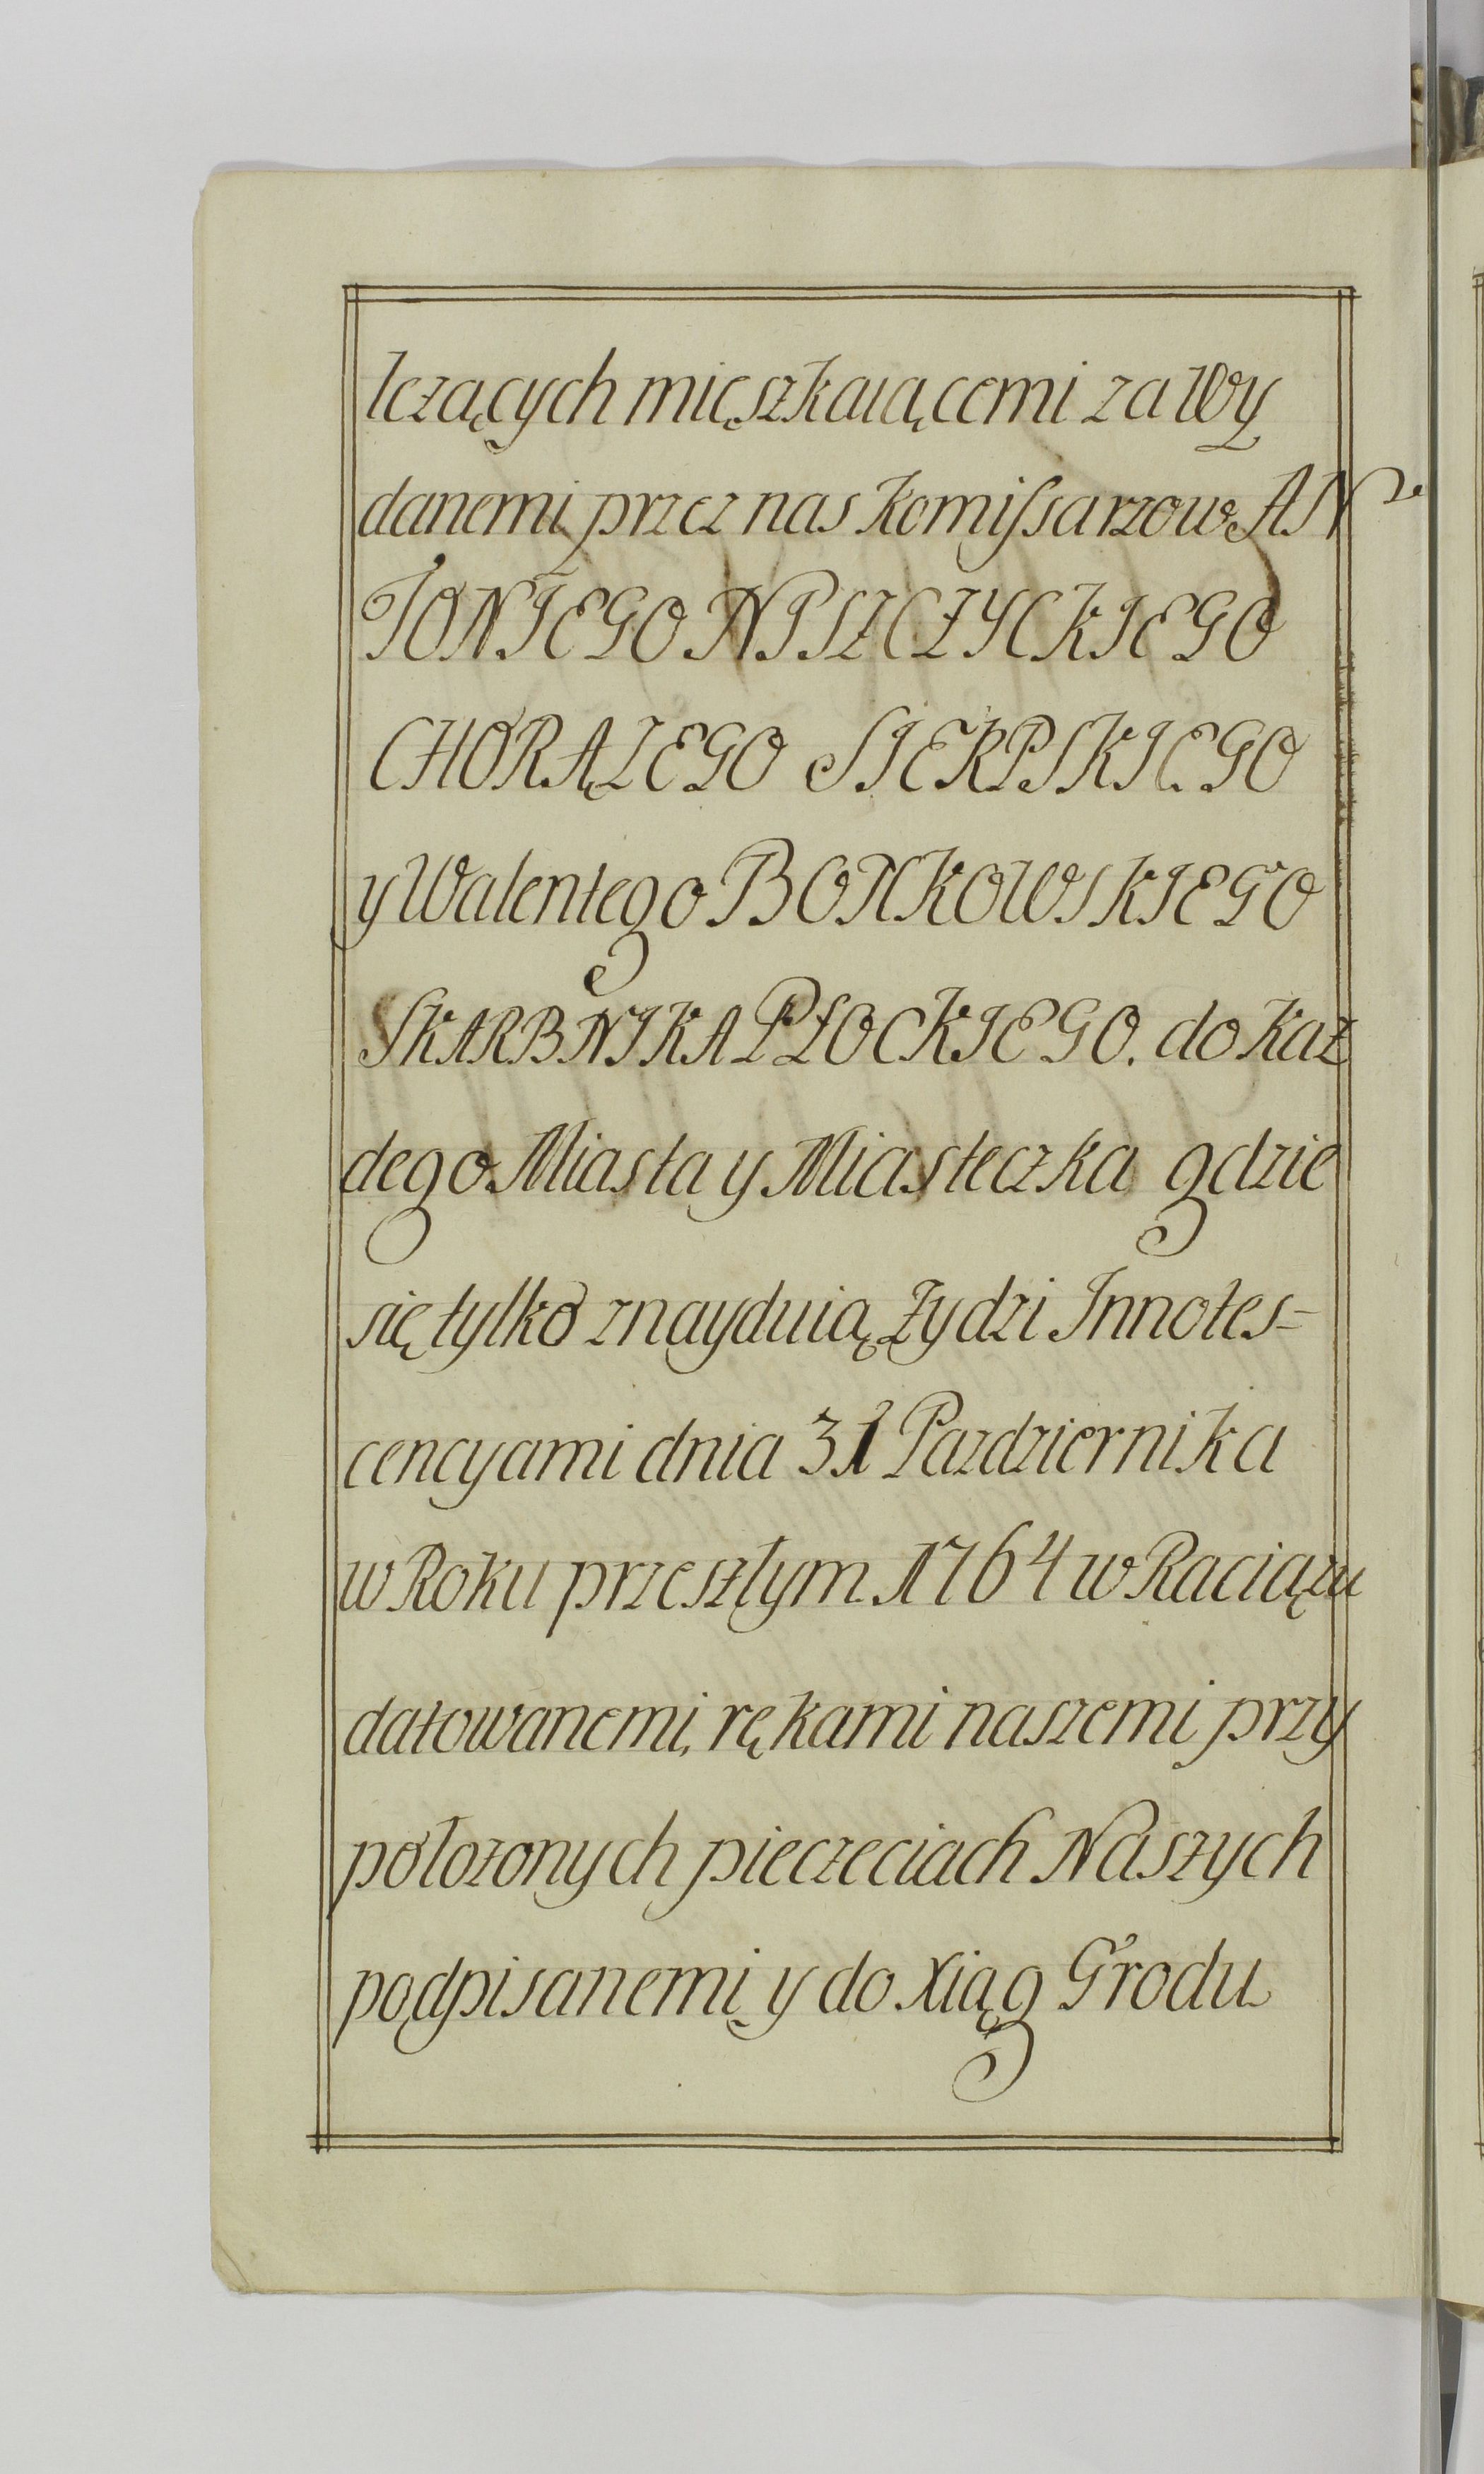 leżących mięszkaiącemi za Wy
danemi przez nas Komissarzow AN
TONIEGO NPSZCZYCKIEGO
CHORĄZEGO SIERPSKIEGO
y Walentego BONKOWSKIEGO
SKARBNIKA PŁOCKIEGO. do Kaz
dego Miasta y Miasteczka gdzie
się tylko znayduią Zydzi Innotes=
cencyami dnia 31 Pazdziernika
w Roku przeszłym 1764 w Raciązu
datowanemi, rękami naszemi przy
połozonych pieczeciach Naszych
podpisanemi y do Xiąg Grodu